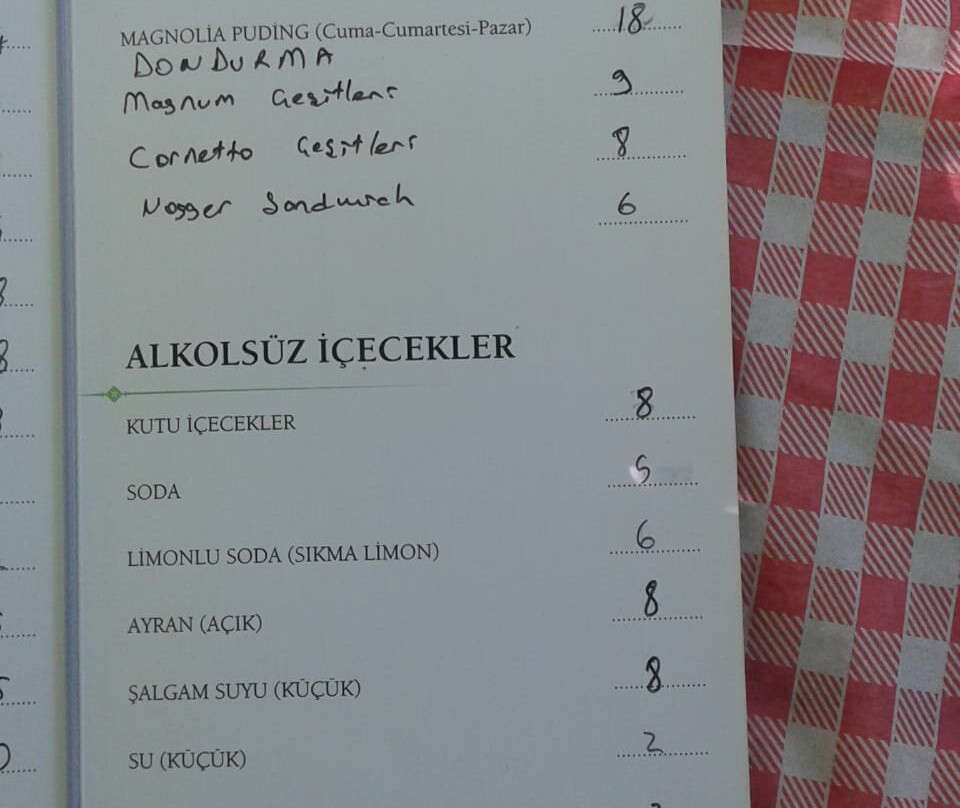 MAGNOLİA PUDİNG (Cuma-Cumartesi-Pazar) ......18......
DONDURMA
Magnum Çeşitleri 9
Cornetto Çeşitleri 8
Nogger Sandwich 6
ALKOLSÜZ İÇECEKLER
KUTU İÇECEKLER 8
SODA 5
LİMONLU SODA (SIKMA LİMON) 6
AYRAN (AÇIK) 8
ŞALGAM SUYU (KÜÇÜK) 8
SU (KÜÇÜK) 2